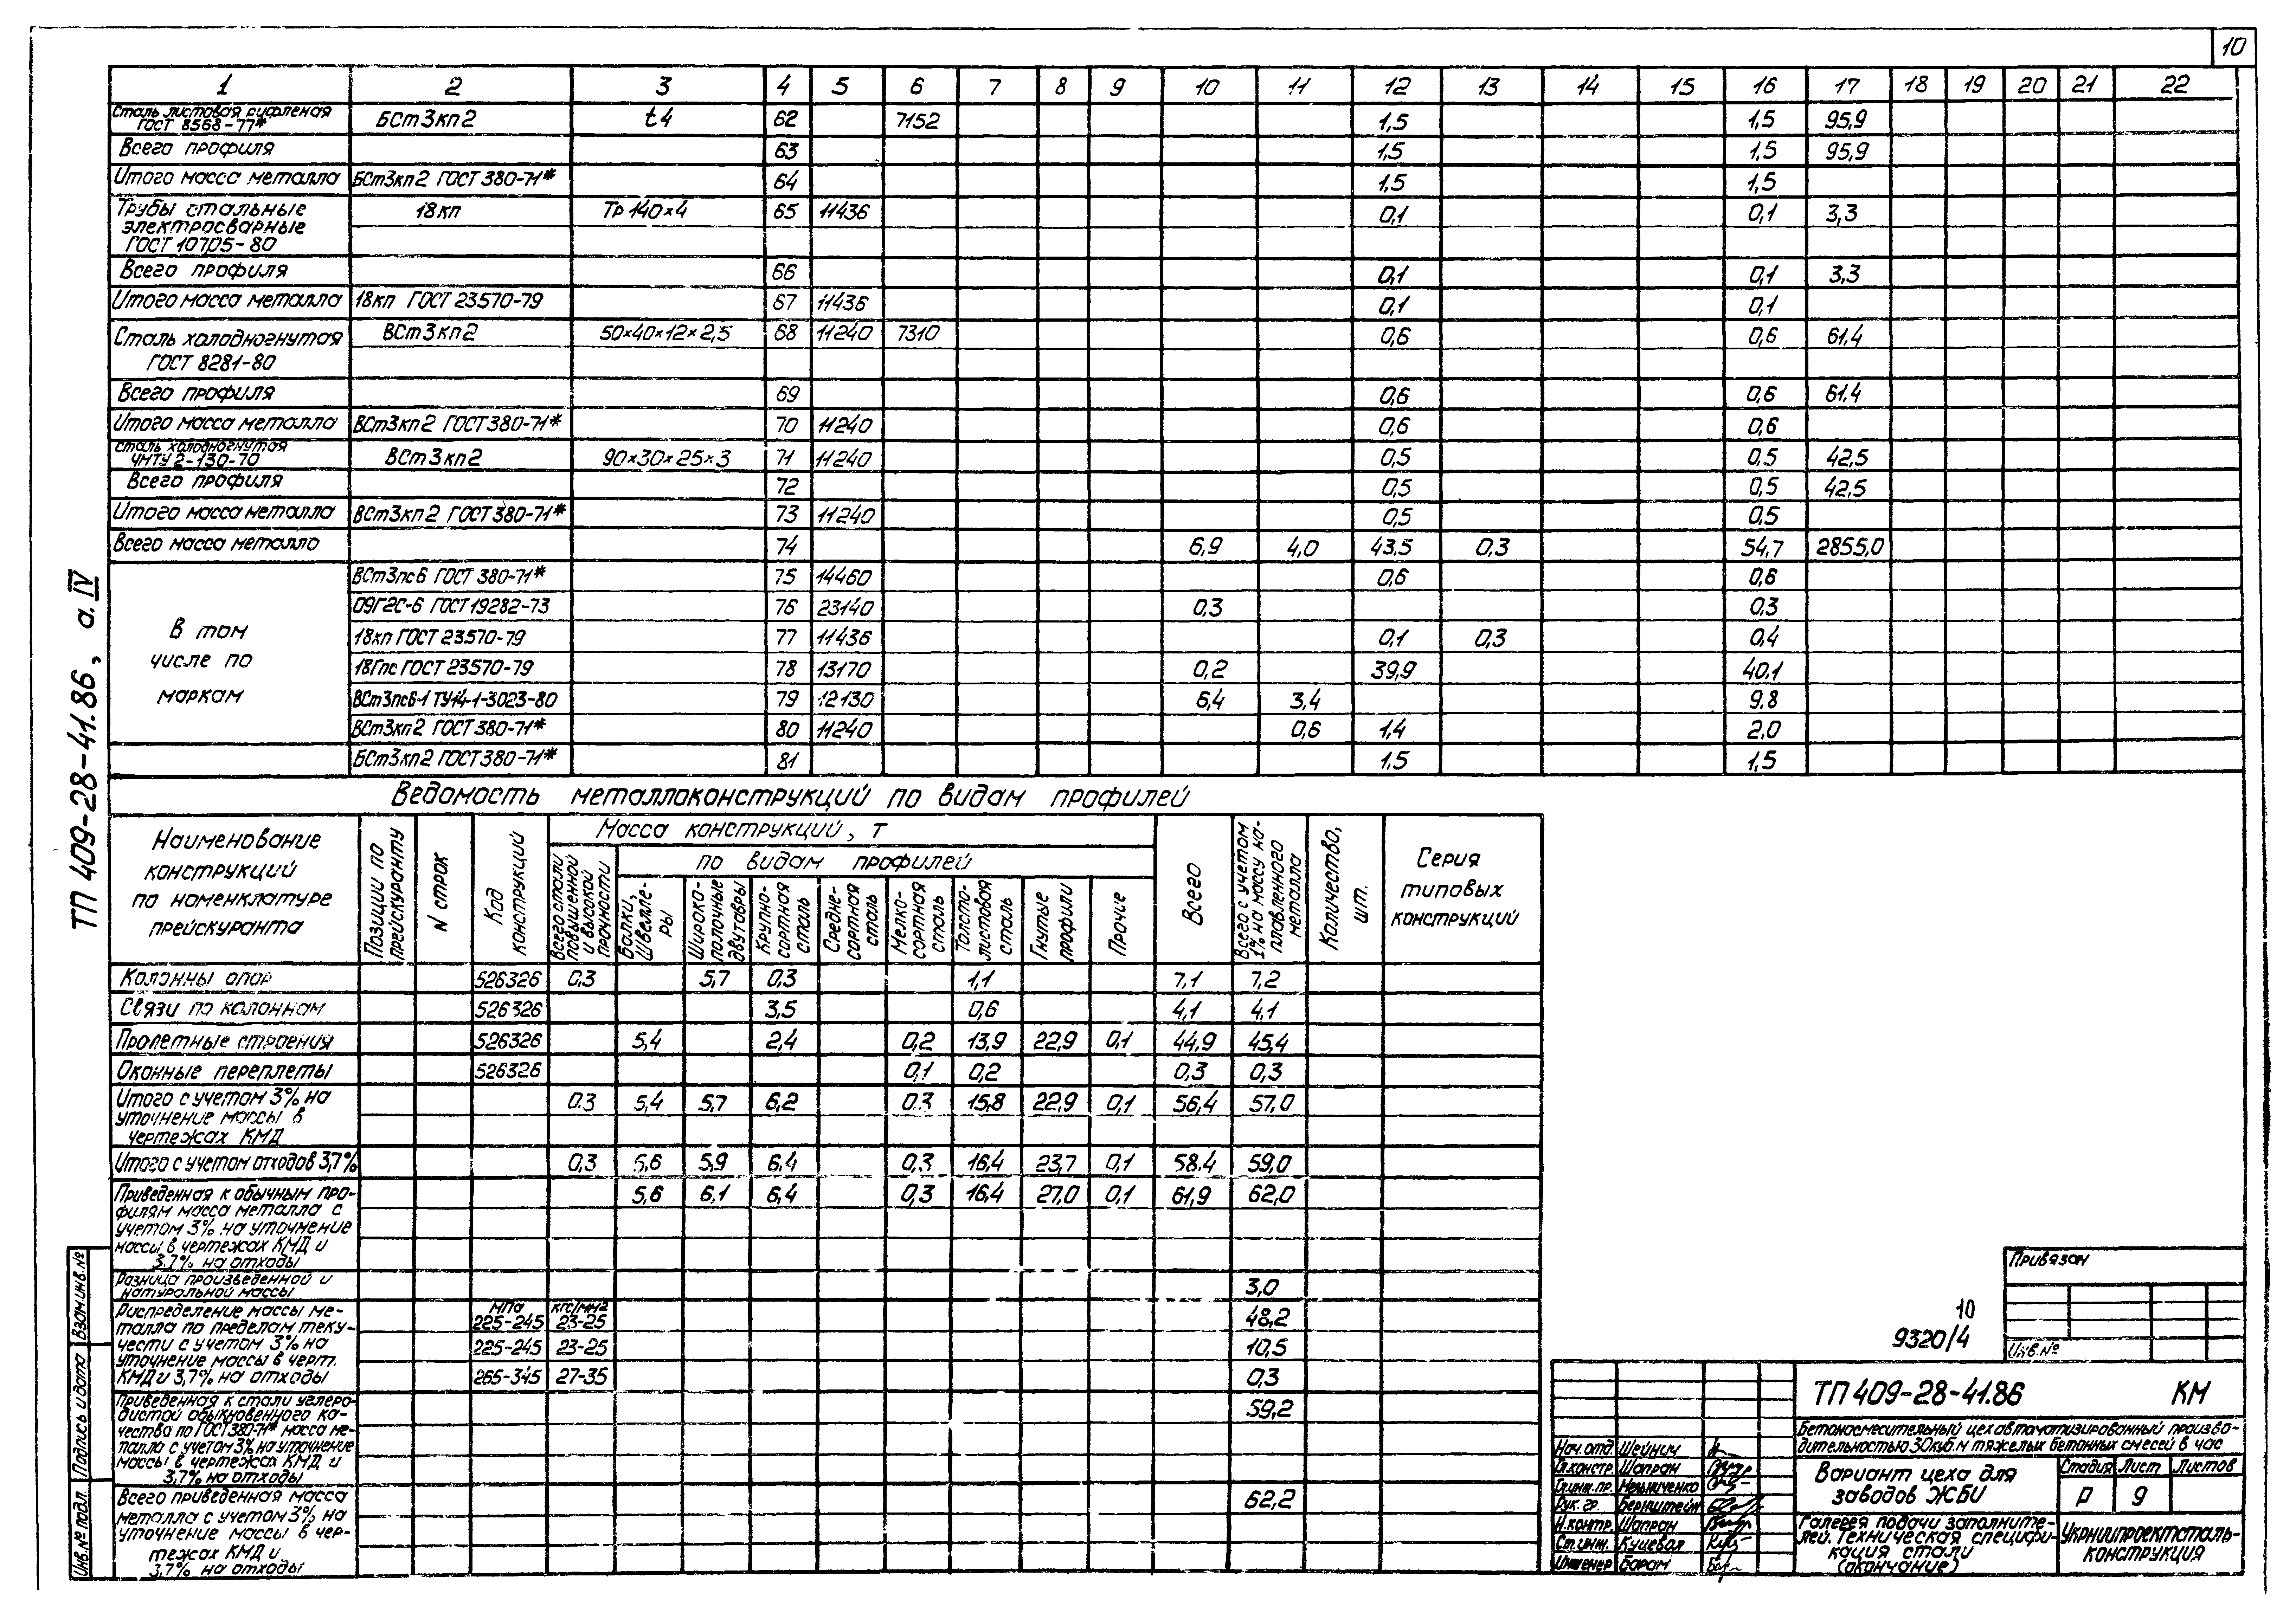 10
1 2 3 4 5 6 7 8 9 10 11 12 13 14 15 16 17 18 19 20 21 22
Сталь листовая рифленая
ГОСТ 8568-77* БСт3кп2 t4 62 7152 1,5 1,5 95,9
Всего профиля 63 1,5 1,5 95,9
Итого масса металла БСт3кп2 ГОСТ 380-71* 64 1,5 1,5
Трубы стальные 18кп Тр 140×4 65 11436 0,1 0,1 3,3
электросварные
ГОСТ 10705-80
Всего профиля 66 0,1 0,1 3,3
Итого масса металла 18кп ГОСТ 23570-79 67 11436 0,1 0,1
Сталь холодногнутая ВСт3кп2 50×40×12×2,5 68 11240 7310 0,6 0,6 61,4
ГОСТ 8281-80
Всего профиля 69 0,6 0,6 61,4
Итого масса металла ВСт3кп2 ГОСТ380-71* 70 11240 0,6 0,6
Сталь холодногнутая
ЧМТУ 2-130-70 ВСт3кп2 90×30×25×3 71 11240 0,5 0,5 42,5
Всего профиля 72 0,5 0,5 42,5
Итого масса металла ВСт3кп2 ГОСТ380-71* 73 11240 0,5 0,5
Всего масса металла 74 6,9 4,0 43,5 0,3 54,7 2855,0
В том
числе по
маркам
ВСт3пс6 ГОСТ 380-71* 75 14460 0,6 0,6
09Г2С-6 ГОСТ19282-73 76 23140 0,3 0,3
18кп ГОСТ 23570-79 77 11436 0,1 0,3 0,4
18Гпс ГОСТ 23570-79 78 13170 0,2 39,9 40,1
ВСт3пс6-1 ТУ14-1-3023-80 79 12130 6,4 3,4 9,8
ВСт3кп2 ГОСТ 380-71* 80 11240 0,6 1,4 2,0
БСт3кп2 ГОСТ380-71* 81 1,5 1,5
Ведомость металлоконструкций по видам профилей
Наименование
конструкций
по номенклатуре
прейскуранта
Позиции по
прейскуранту
N строк
Код
конструкций
Масса конструкций, т
Всего стали
повышенной
и высокой
прочности
по видам профилей
Балки,
Швелле-
ры
Широко-
полочные
двутавры
Крупно-
сортная
сталь
Средне-
сортная
сталь
Мелко-
сортная
сталь
Толсто-
листовая
сталь
Гнутые
профили
Прочие
Всего
Всего с учетом
1% на массу на-
плавленного
металла
Количество,
шт.
Серия
типовых
конструкций
Колонны опор 526326 0,3 5,7 0,3 1,1 7,1 7,2
Связи по колоннам 526326 3,5 0,6 4,1 4,1
Пролетные строения 526326 5,4 2,4 0,2 13,9 22,9 0,1 44,9 45,4
Оконные переплеты 526326 0,1 0,2 0,3 0,3
Итого с учетом 3% на 0,3 5,4 5,7 6,2 0,3 15,8 22,9 0,1 56,4 57,0
уточнение массы в
чертежах КМД
Итого с учетом отходов 3,7% 0,3 5,6 5,9 6,4 0,3 16,4 23,7 0,1 58,4 59,0
Приведенная к обычным про- 5,6 6,1 6,4 0,3 16,4 27,0 0,1 61,9 62,0
филям масса металла с
учетом 3% на уточнение
массы в чертежах КМД и
3,7% на отходы
Разница произведенной и
натуральной массы 3,0
Распределение массы ме- МПа кгс/мм2
талла по пределам теку- 225-245 23-25 48,2
чести с учетом 3% на 225-245 23-25 10,5
уточнение массы в черт.
КМД и 3,7% на отходы 265-345 27-35 0,3
Приведенная к стали углеро-
дистой обыкновенного ка- 59,2
чества по ГОСТ380-71* масса ме-
талла с учетом 3% на уточнение
массы в чертежах КМД и
3,7% на отходы
Всего приведенная масса 62,2
металла с учетом 3% на
уточнение массы в чер-
тежах КМД и
3,7% на отходы
ТП 409-28-41.86, а. IV
Взам.инв.№
Подпись и дата
Инв.№ подл.
Привязан
Инв.№
10
9320/4
ТП 409-28-41.86 КМ
Бетоносмесительный цех автоматизированный произво-
дительностью 30куб.м тяжелых бетонных смесей в час
Нач.отд. Шейнич
Гл.констр. Шапран
Гл.инж.пр. Мельниченко
Рук. гр. Бернштейн
Н.контр. Шапран
Ст.инж. Куцевая
Инженер Барам
Вариант цеха для
заводов ЖБИ
Стадия Лист Листов
Р 9
Галерея подачи заполните-
лей. Техническая специфи-
кация стали
(окончание)
Укрниипроектсталь-
конструкция